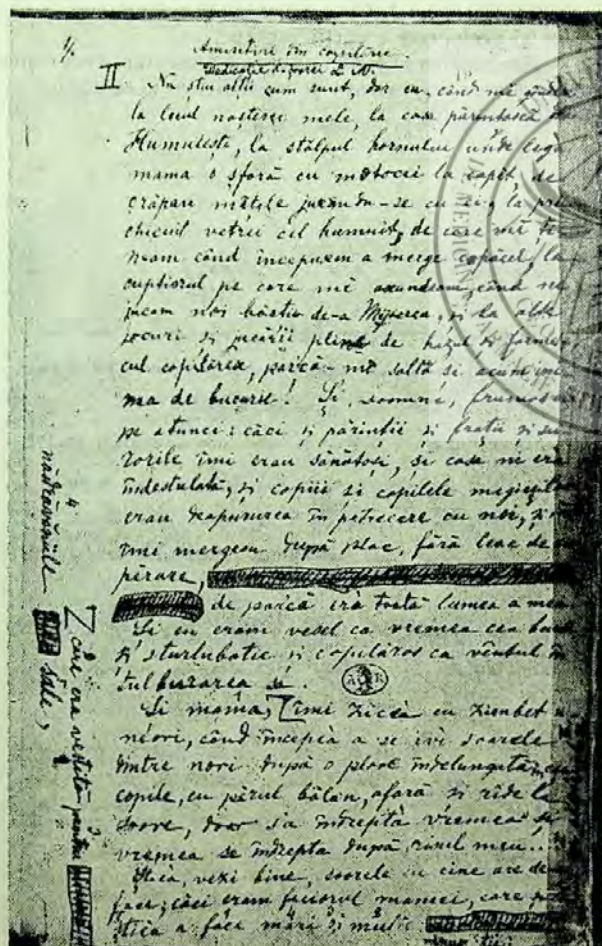 1/.
Amintiri din copilărie.
Dedicație d-șoarei L. M.
II Nu știu alții cum sunt, dar eu, când mĕ
la locul nașterei mele, la casa părintească
Humulești, la stâlpul hornului unde lega
mama o sfoară cu motocei la capĕt, de
crăpau mâțele jucându-se cu ei, la
chiciul vetrei cel humuit, de care mĕ
neam când începusem a merge copăcel, la
cuptiorul pe care mĕ ascundeam, când ne
jucam noi băieții de-a Mijoarca, și la alte
jocuri și jucării pline de hazul și
cul copilăresc, parcă-mĭ saltă și acum
ma de bucurie! Și, Doamne, frumos
pe atunci: căci și părinții și frații și
rorile îmi erau sănătoși, și casa ni era
îndestulată, și copiii și copilele
erau deapururea în petrecere cu noi,
îmi mergeau după plac, fără leac de
părare,
de parcă era toată lumea a mea
Și eu eram vesel ca vremea cea bună
și sturlubatic și copilăros ca vĕntul în
tulburarea sa.
Și mama, [ îmi zicea cu zimbet
neori, când începea a se ivi soarele
dintre nori după o ploae îndelungată:
copile, cu pĕrul bălan, afară și rîde la
soare, doar s'a îndrepta vremea și
vremea se îndrepta după rîsul meu..
Știa, vezi bine, soarele cu cine are de
face; căci eram feciorul mamei, care
știea a face mari și multe
[ care era vestită pentru
năsdrăvăniile
sale,